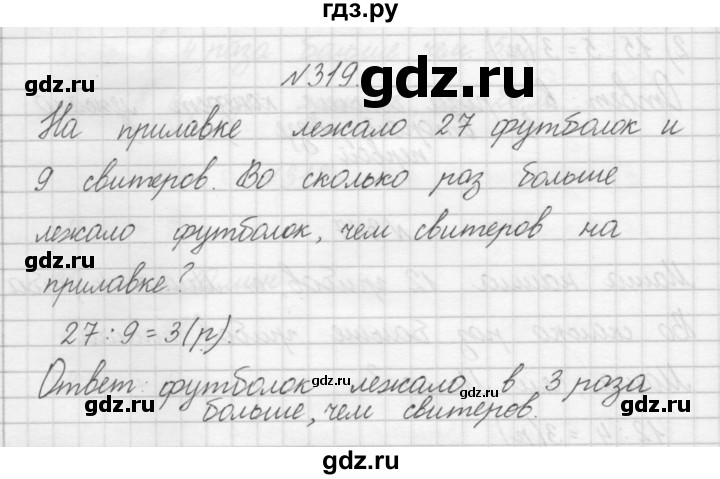 гдз.ру
gdz.ru
№319.
На прилавке лежало 27 футболок и
9 свитеров. Во сколько раз больше
gdz.ru
лежало футболок, чем свитеров на
gdz.ru
прилавке?
gdz.ru
27 : 9 = 3 (р).
Ответ: футболок лежало в 3 раза
gdz.ru
gdz.ru
gdz.ru
больше, чем свитеров.
gdz.ru
гдз.ру